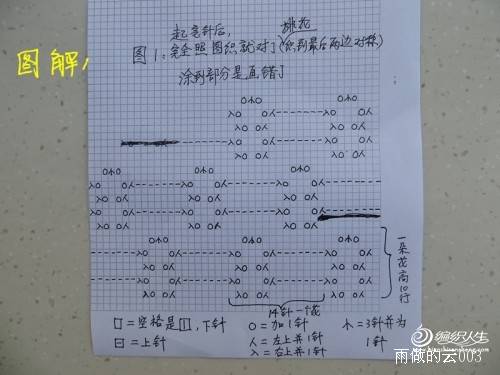 图解
起完针后, 挑花
图1:完全照图织就对了(织到最后两边对称)
涂到部分是画错了
一朵花高10行
14针一个花
囗=空格是囗,下针 O=加1针 木=3针并为1针
曰=上针 人=左上并1针
入=右上并1针
编织人生
bianzhirensheng.com
雨做的云003